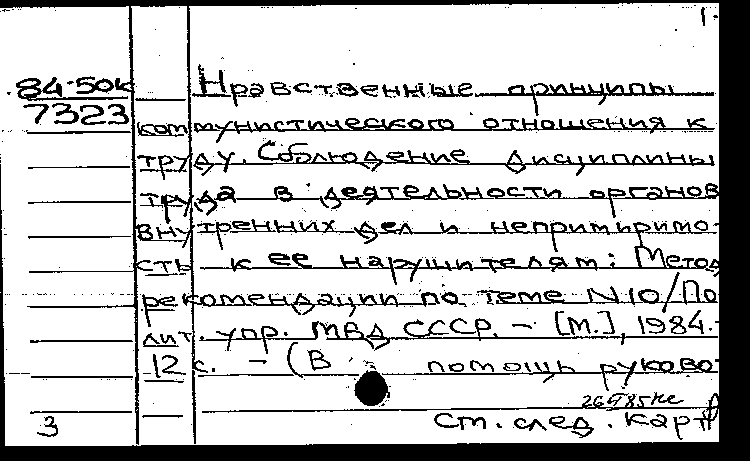 1.
84-50к Нравственные принципы
7323
коммунистического отношения к
труду. Соблюдение дисциплины
труда в деятельности органов
внутренних дел и непримиримо-
сть к ее нарушителям: Метод
рекомендации по теме N10/По
лит. упр. МВД СССР. - [М.], 1984.-
12 с. - (В помощь руково-
3 см. след. карт